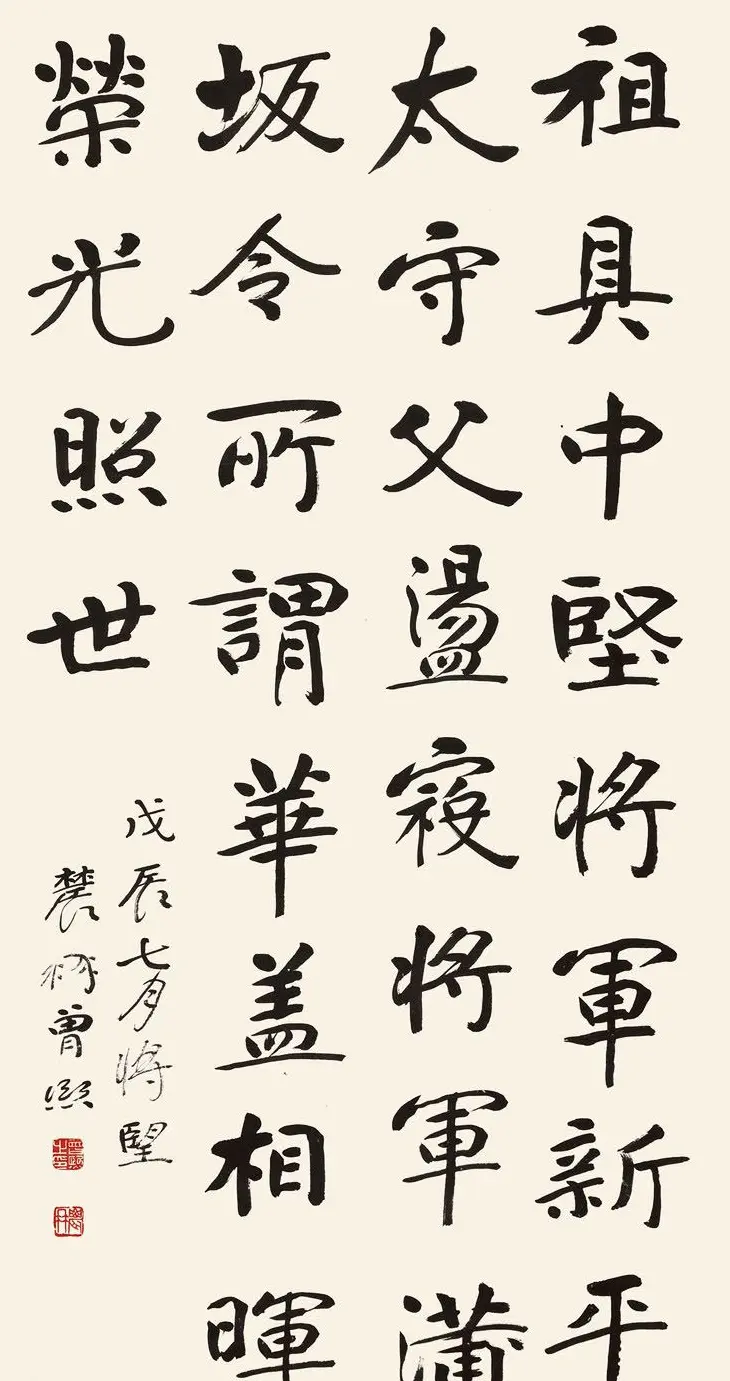 祖具中堅將軍新平
太守父盪寇將軍蒲
坂令所謂華盖相暉
榮光照世
戊辰七月將望
農髯曾熙